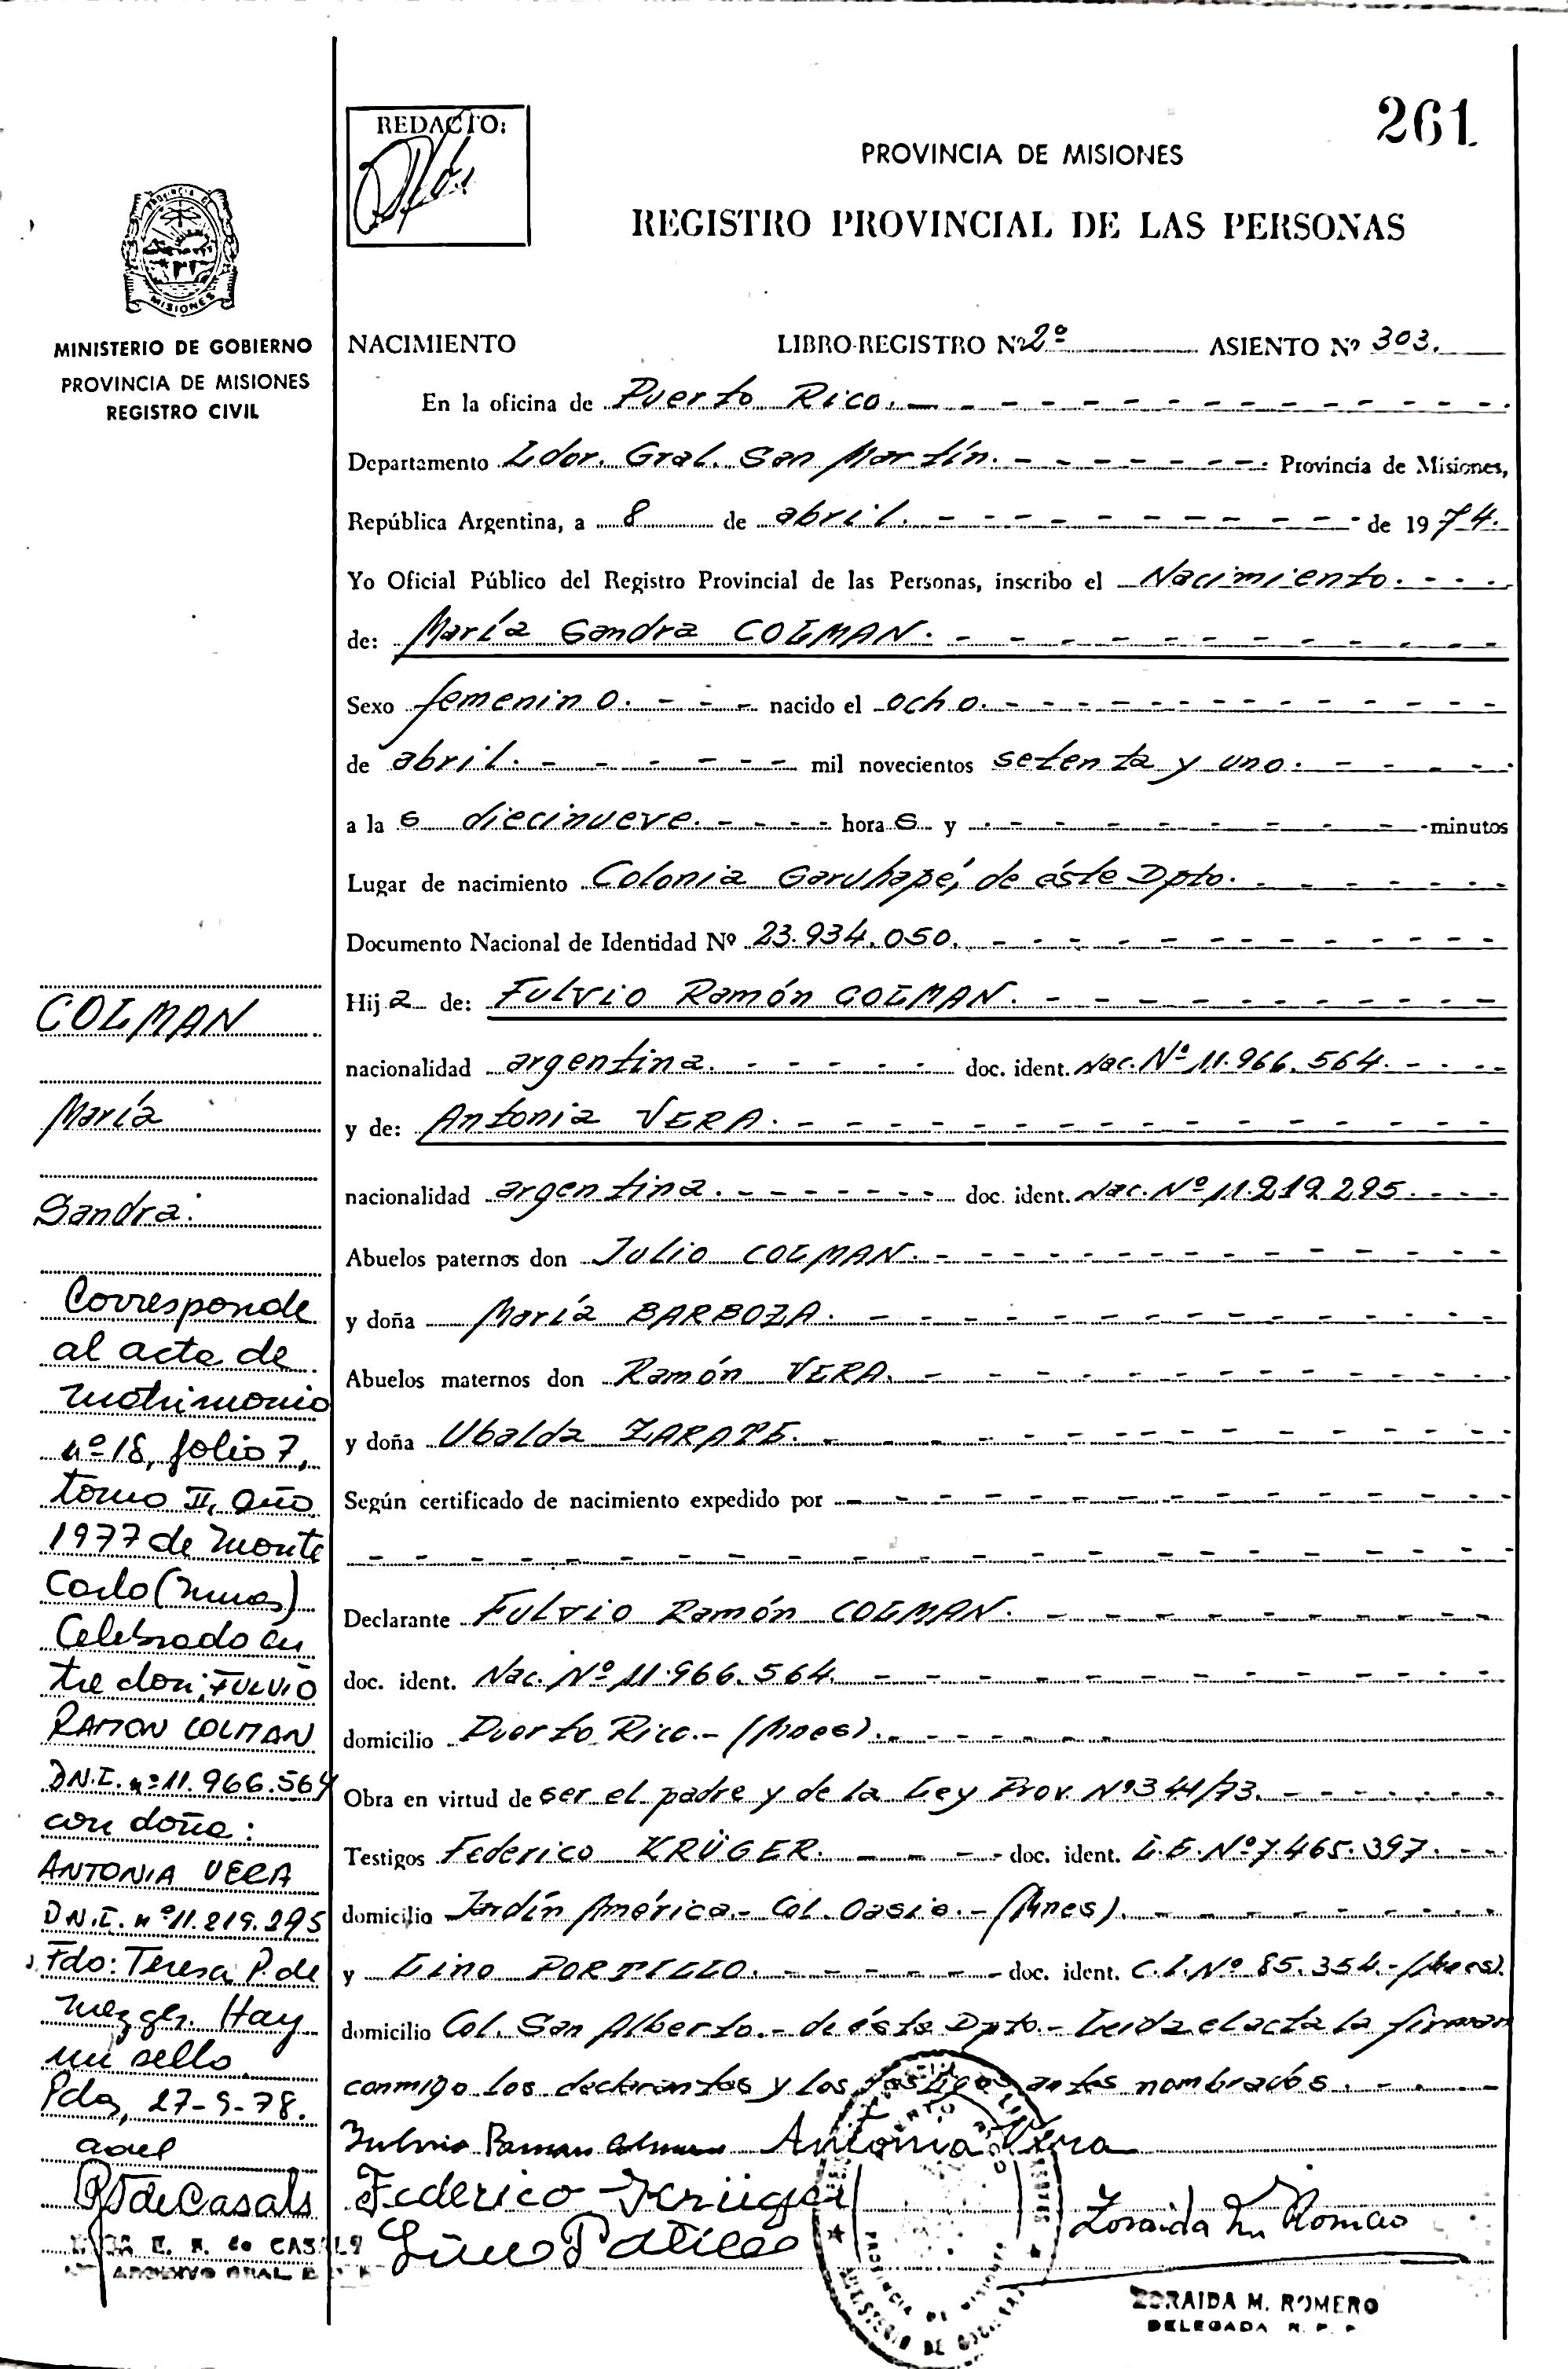 261
REDACTO:
PROVINCIA DE MISIONES
REGISTRO PROVINCIAL DE LAS PERSONAS
MISIONES
MINISTERIO DE GOBIERNO
PROVINCIA DE MISIONES
REGISTRO CIVIL
NACIMIENTO LIBRO-REGISTRO Nº 2º ASIENTO Nº 303.
En la oficina de Puerto Rico.
Departamento Ldor. Gral. San Martín. Provincia de Misiones,
República Argentina, a 8 de abril. de 1974.
Yo Oficial Público del Registro Provincial de las Personas, inscribo el Nacimiento.
de: María Sandra COLMAN.
Sexo femenino. nacido el ocho.
de abril. mil novecientos setenta y uno.
a la s diecinueve. hora s y minutos
Lugar de nacimiento Colonia Garuhapé, de éste Dpto.
Documento Nacional de Identidad Nº 23.934.050.
Hij a de: Fulvio Ramón COLMAN.
nacionalidad argentina. doc. ident. Nac. Nº 11.966.564.
y de: Antonia VERA.
nacionalidad argentina. doc. ident. Nac. Nº 11.219.295.
Abuelos paternos don Julio COLMAN.
y doña María BARBOZA.
Abuelos maternos don Ramón VERA.
y doña Ubalda ZARATE.
Según certificado de nacimiento expedido por
Declarante Fulvio Ramón COLMAN.
doc. ident. Nac. Nº 11.966.564.
domicilio Puerto Rico.- (Mnes).
Obra en virtud de ser el padre y de la Ley Prov. Nº 341/73.
Testigos Federico KRÜGER. doc. ident. L.E. Nº 7.465.397.
domicilio Jardín América.- Col. Oasis.- (Mnes).
y Lino PORTILLO. doc. ident. C.I. Nº 85.354.- (Mnes).
domicilio Col. San Alberto.- de ésta Dpto.- Leida el acta la firman
conmigo los declarantes y los testigos antes nombrados.
Fulvio Ramon Colman Antonia Vera
Federico Krüger
Lino Patilleo
Zoraida M. Romero
ZORAIDA M. ROMERO
DELEGADA R. P. P
COLMAN
María
Sandra.
Corresponde
al acta de
matrimonio
nº 18, folio 7,
tomo II, año
1977 de Monte
Carlo (Mnes)
Celebrado en
tre don: FULVIO
RAMON COLMAN
D.N.I. nº 11.966.564
con doña:
ANTONIA VERA
D.N.I. nº 11.219.295
Fdo: Teresa P. de
Mezger. Hay
un sello
Pdas, 27-9-78.
de Casals
E. R. de CASALS
ARCHIVO GRAL